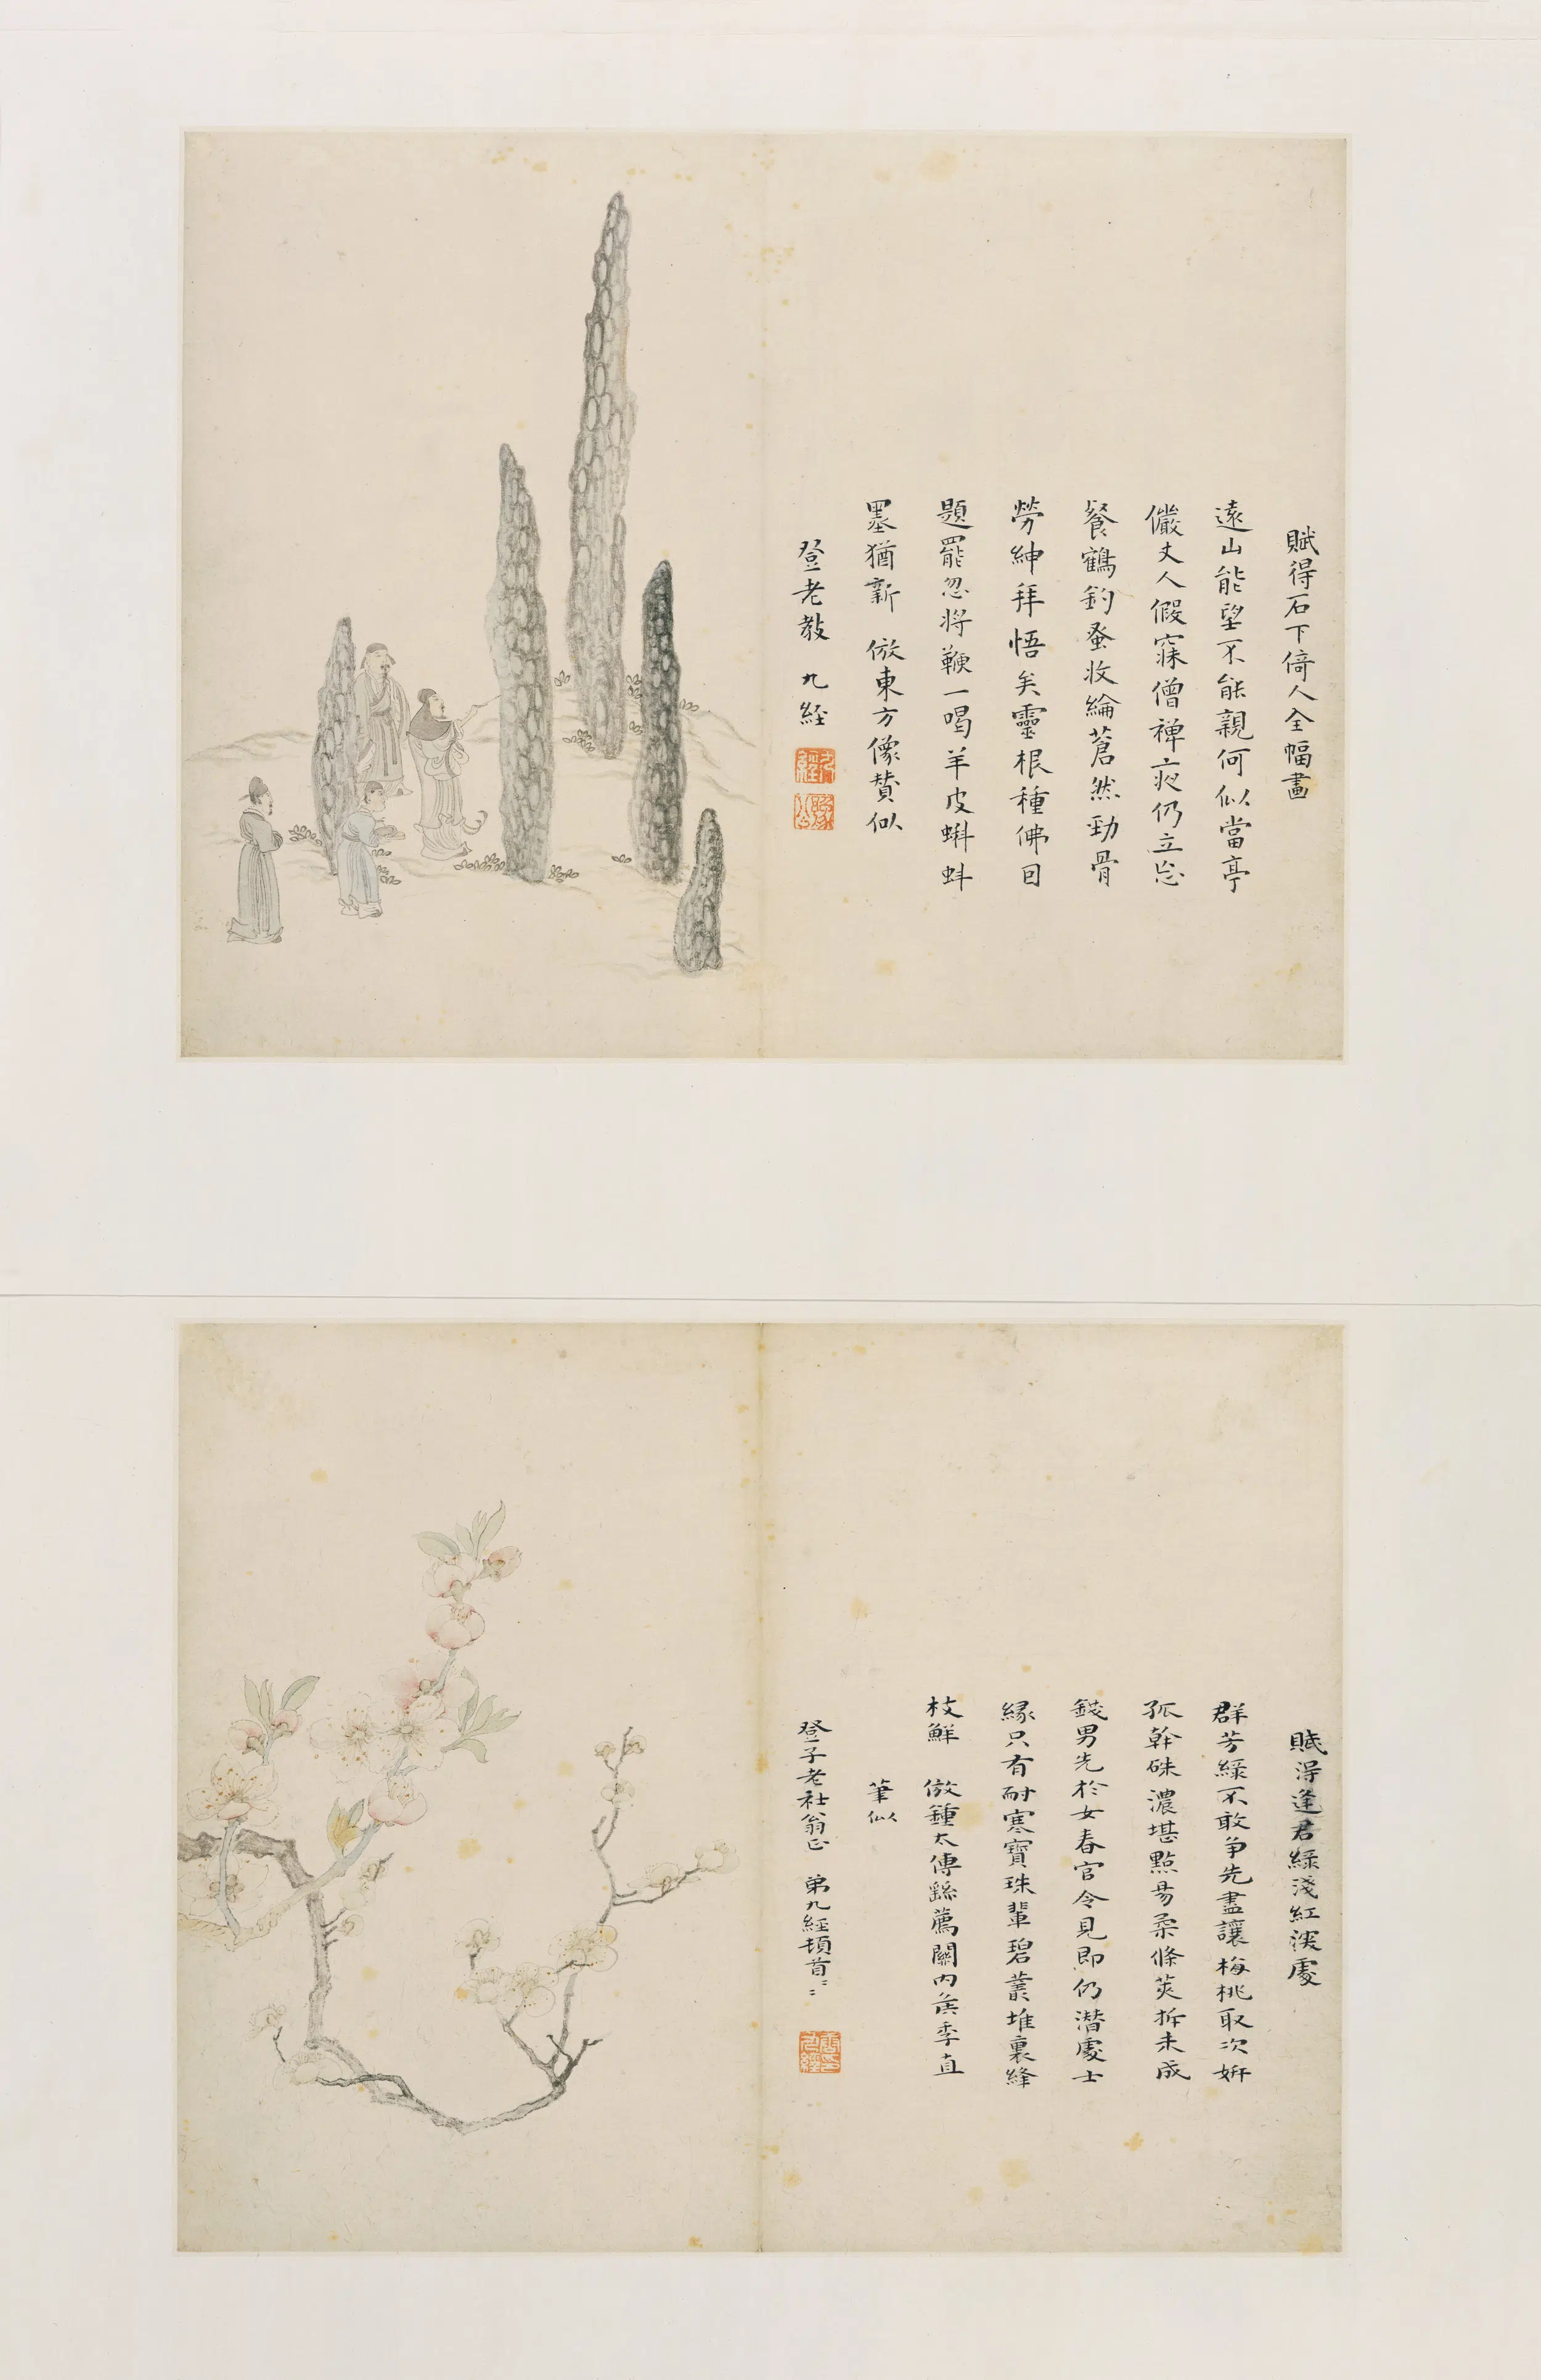 賦得石下倚人全幅畫
遠山能望不能親何似當亭
儼丈人假寐僧禪亦仍立忘
餐鶴鈞叄收綸蒼然勁骨
勞紳拜悟矣靈根種佛因
題罷忽將鞭一喝羊皮蝌蚪
墨猶新 倣東方像贊似
登老教 九經
賦得逢君綠淺紅深處
群芳綠不敢爭先盡讓梅桃取次妍
孤幹硃濃堪點易柔條莢拆未成
錢男先於女春官令見即仍潛處士
緣只有耐寒寶珠輩碧叢堆裏絳
枝鮮 倣鍾太傅繇薦關內侯季直
筆似
登子老社翁正 弟九經頓首